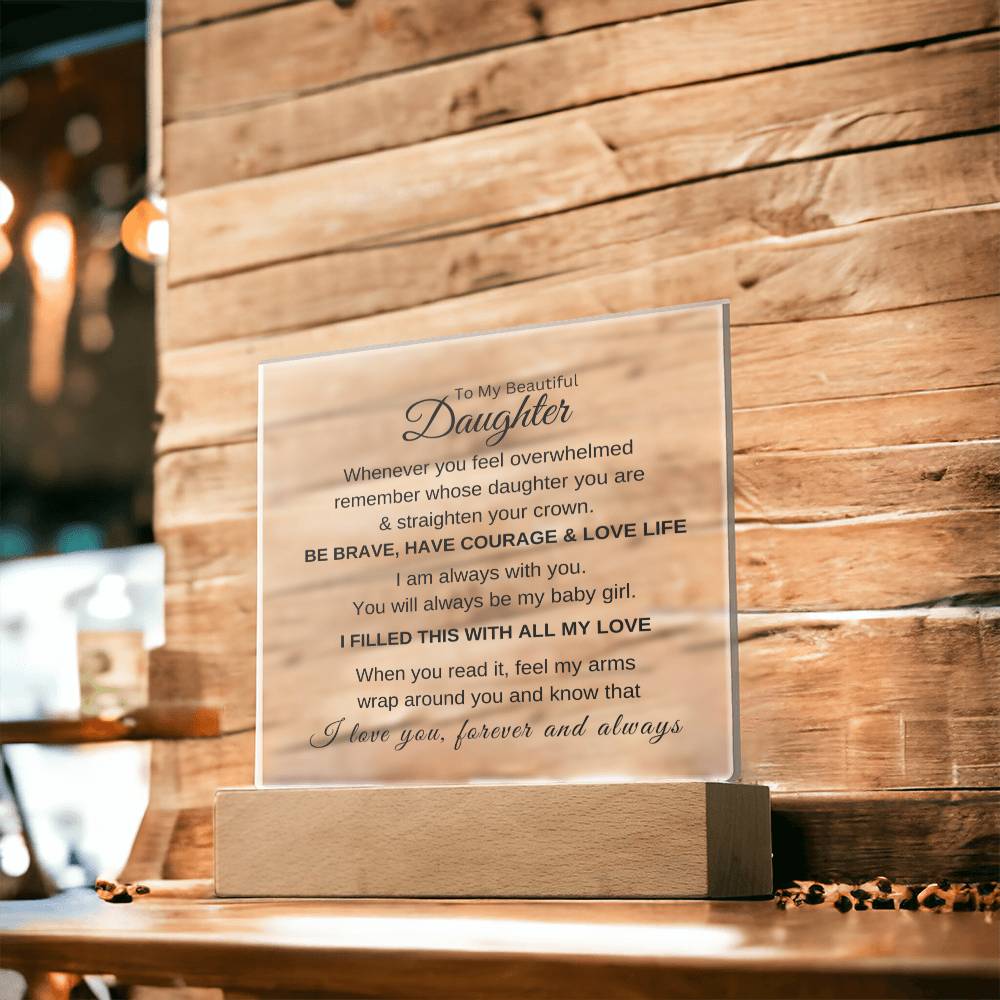 To My Beautiful
Daughter
Whenever you feel overwhelmed
remember whose daughter you are
& straighten your crown.
BE BRAVE, HAVE COURAGE & LOVE LIFE
I am always with you.
You will always be my baby girl.
I FILLED THIS WITH ALL MY LOVE
When you read it, feel my arms
wrap around you and know that
I love you, forever and always